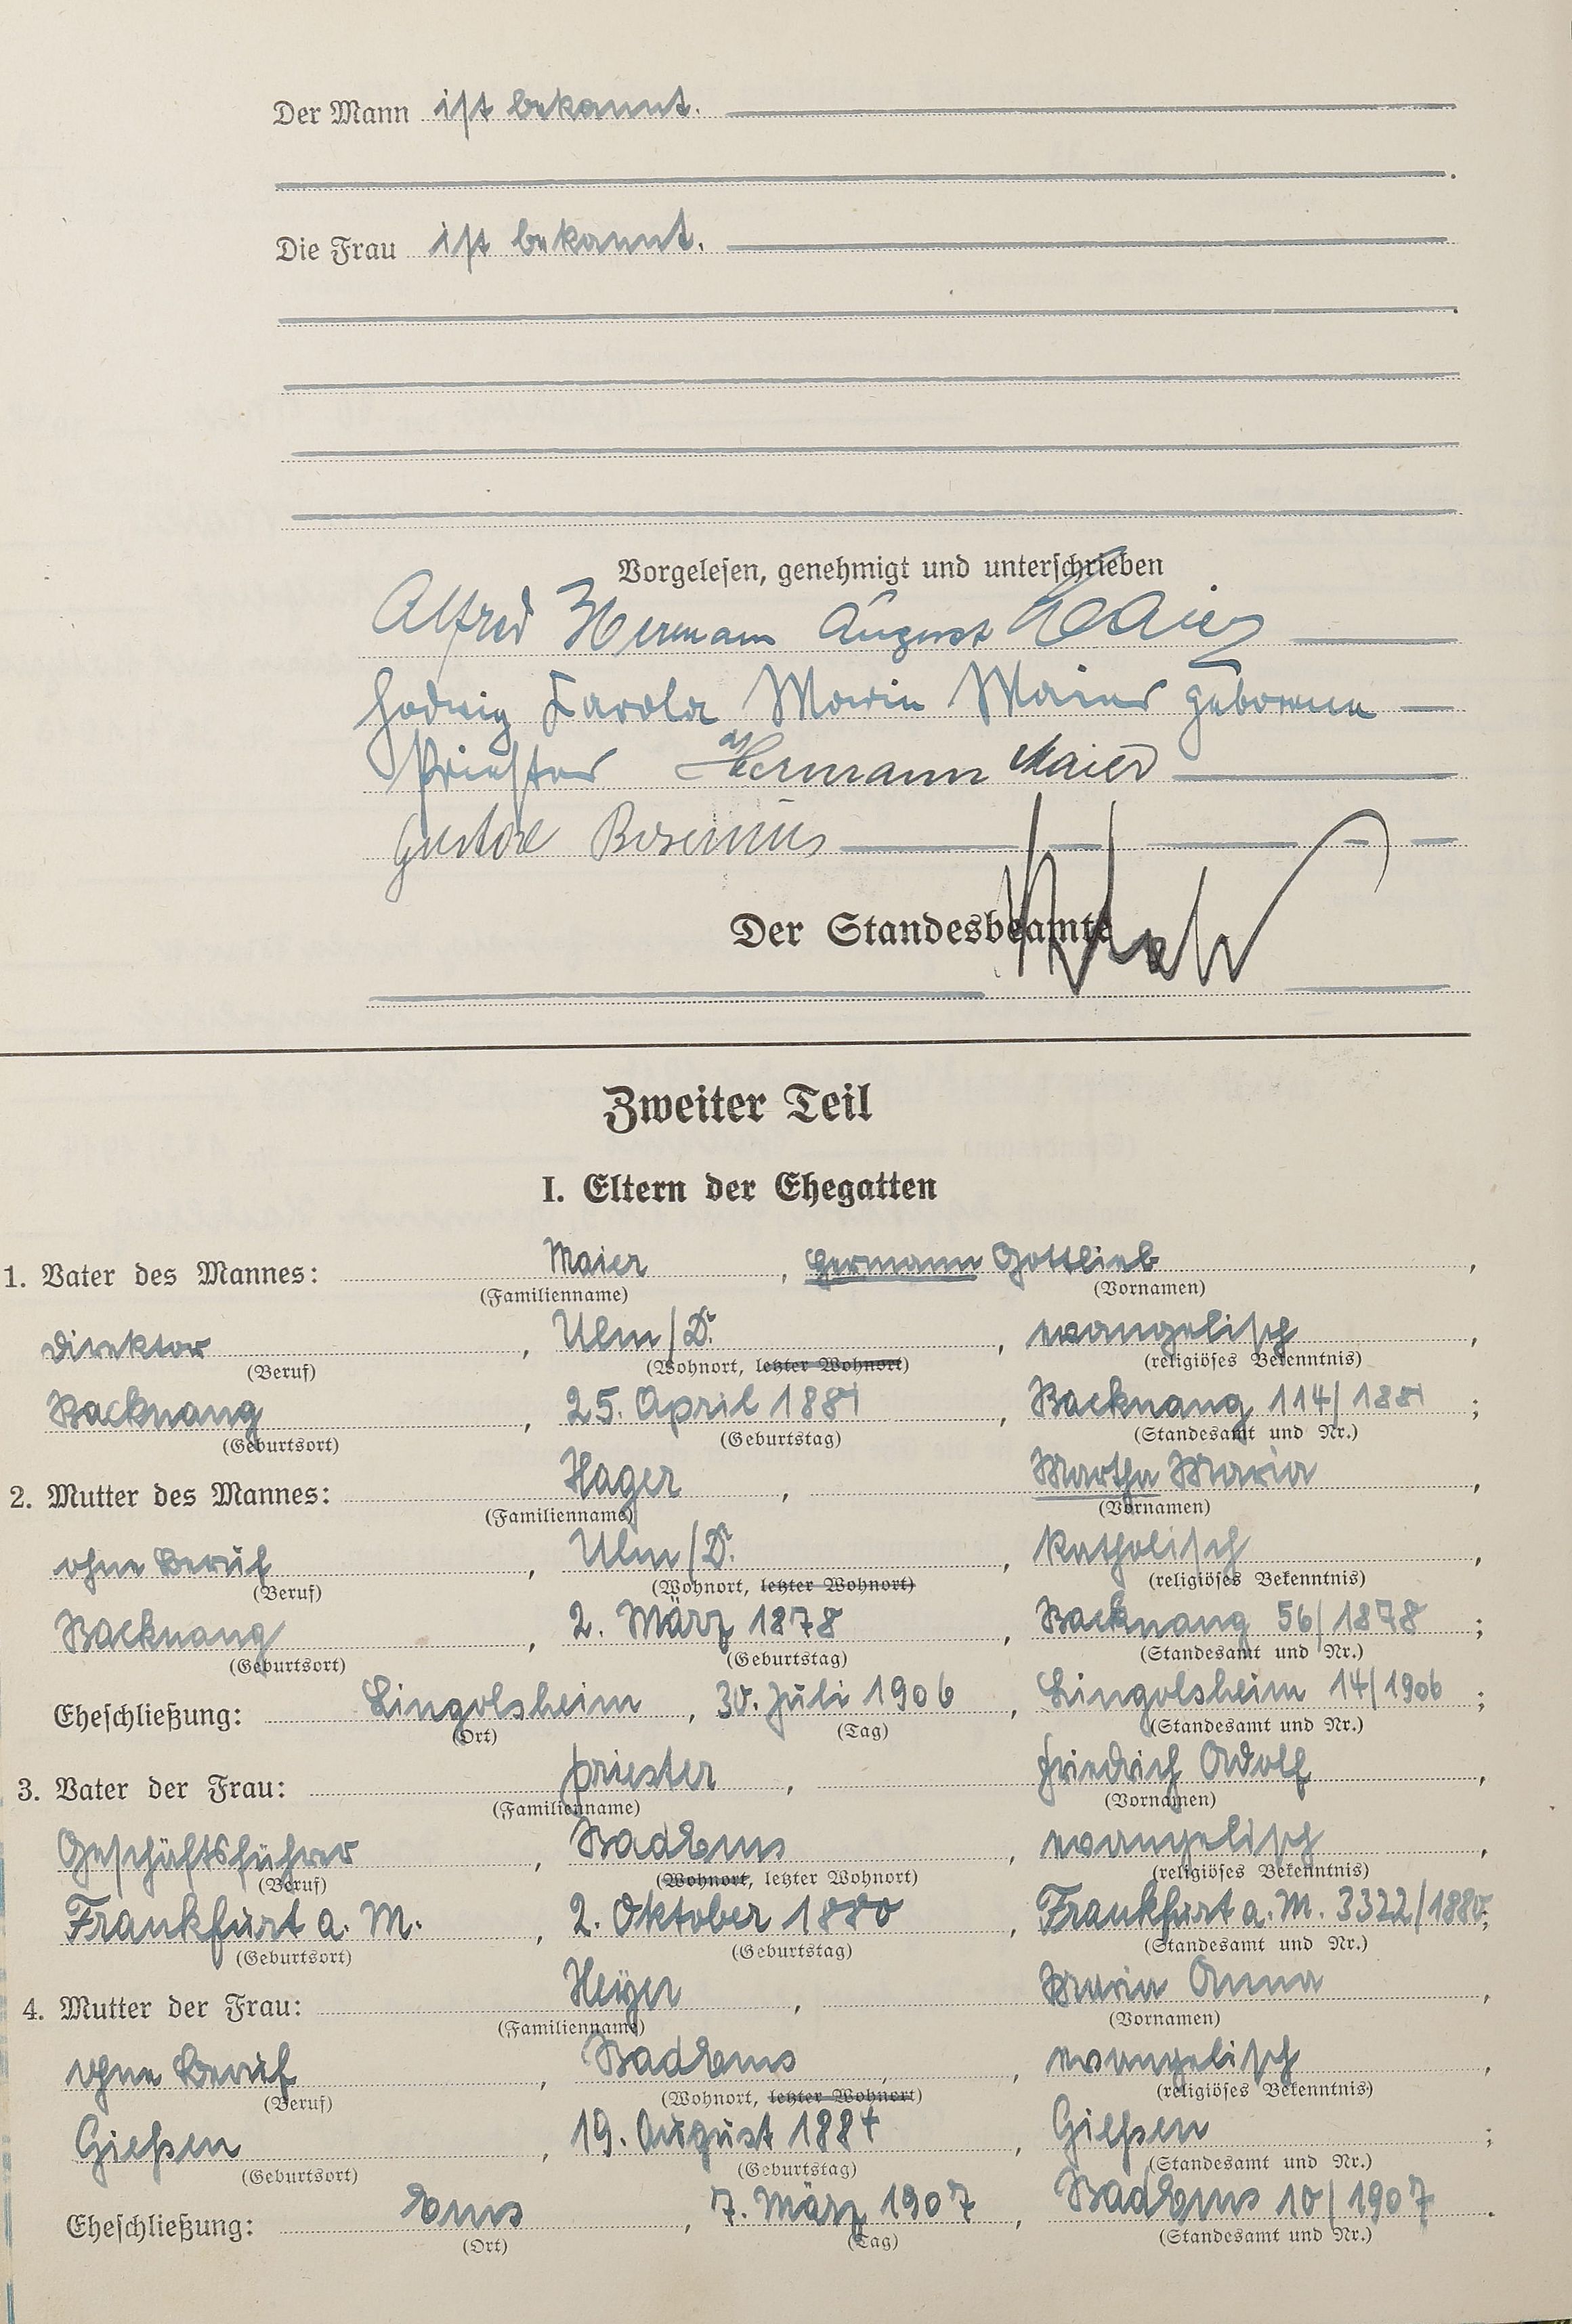 Der Mann ist bekannt.
Die Frau ist bekannt.
Vorgelesen, genehmigt und unterschrieben
Alfred Hermann August Maier
Hedwig Karola Maria Maier geborene
Priester Hermann Maier
Gustav
Der Standesbeamte
Zweiter Teil
I. Eltern der Ehegatten
1. Vater des Mannes: Maier, Hermann Gottlieb,
(Familienname) (Vornamen)
Direktor, Ulm/D., evangelisch,
(Beruf) (Wohnort, letzter Wohnort) (religiöses Bekenntnis)
Backnang, 25. April 1881, Backnang 114/1881;
(Geburtsort) (Geburtstag) (Standesamt und Nr.)
2. Mutter des Mannes: Hager, Martha Maria,
(Familienname) (Vornamen)
ohne Beruf, Ulm/D., katholisch,
(Beruf) (Wohnort, letzter Wohnort) (religiöses Bekenntnis)
Backnang, 2. März 1878, Backnang 56/1878;
(Geburtsort) (Geburtstag) (Standesamt und Nr.)
Eheschließung: Lingolsheim, 30. Juli 1906, Lingolsheim 14/1906;
(Ort) (Tag) (Standesamt und Nr.)
3. Vater der Frau: Priester, Friedrich Adolf,
(Familienname) (Vornamen)
Geschäftsführer, Bad Ems, evangelisch,
(Beruf) (Wohnort, letzter Wohnort) (religiöses Bekenntnis)
Frankfurt a. M., 2. Oktober 1880, Frankfurt a. M. 3322/1880;
(Geburtsort) (Geburtstag) (Standesamt und Nr.)
4. Mutter der Frau: Heyer, Maria Anna,
(Familienname) (Vornamen)
ohne Beruf, Bad Ems, evangelisch,
(Beruf) (Wohnort, letzter Wohnort) (religiöses Bekenntnis)
Gießen, 19. August 1884, Gießen;
(Geburtsort) (Geburtstag) (Standesamt und Nr.)
Eheschließung: Ems, 7. März 1907, Bad Ems 10/1907.
(Ort) (Tag) (Standesamt und Nr.)